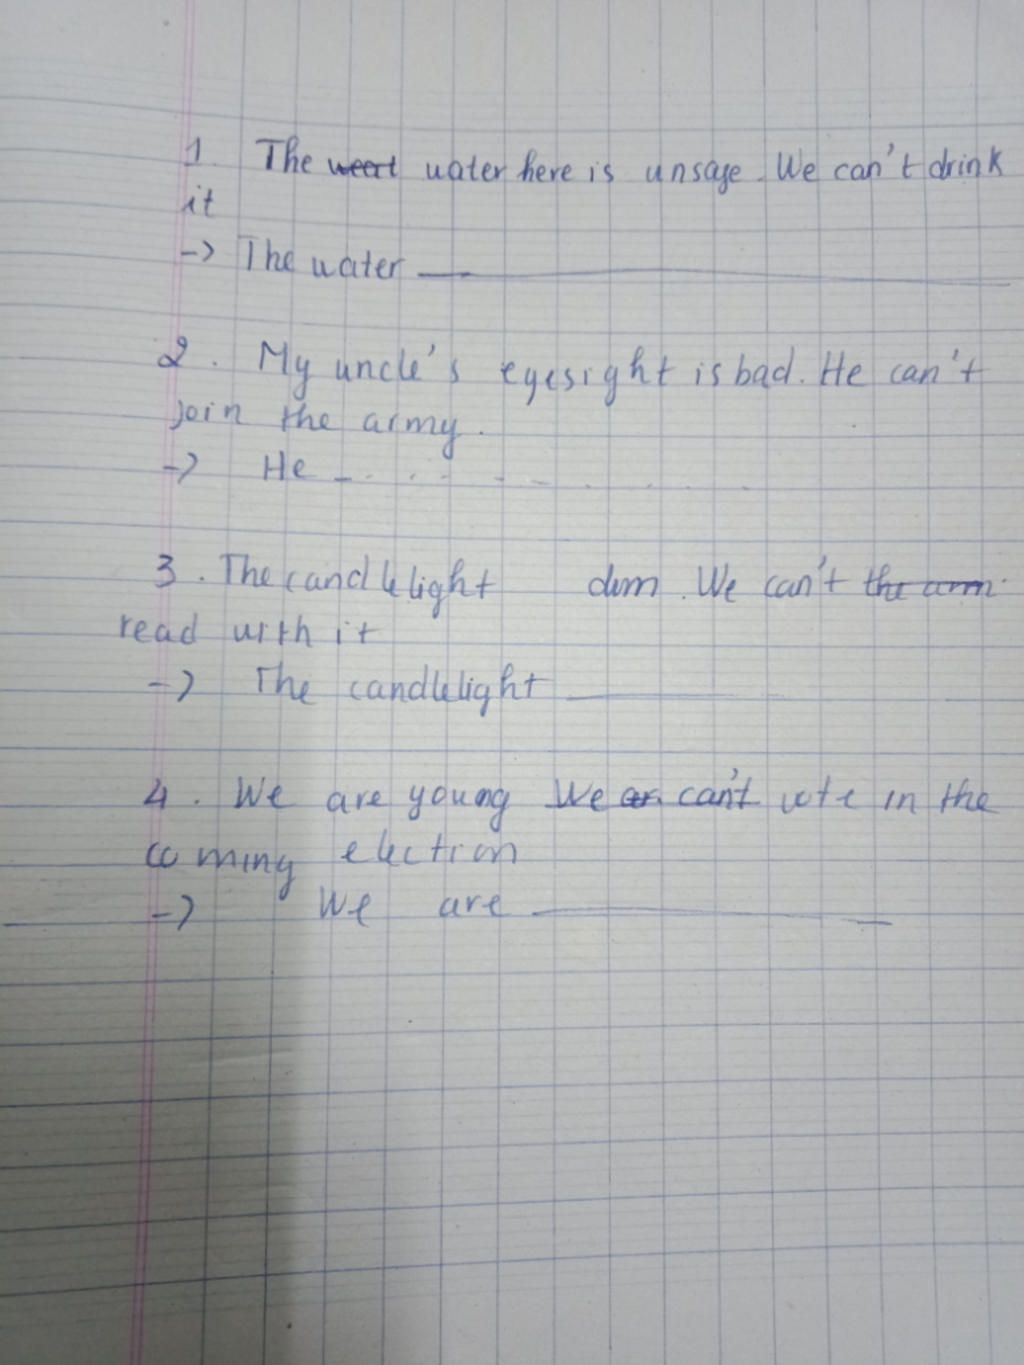 1. The water here is unsage. We can't drink
it
-> The water
2. My uncle's eyesight is bad. He can't
join the army.
-> He
3. The candlelight dim. We can't the arm
read with it
-> The candlelight
4. We are young We can't vote in the
coming election
-> We are